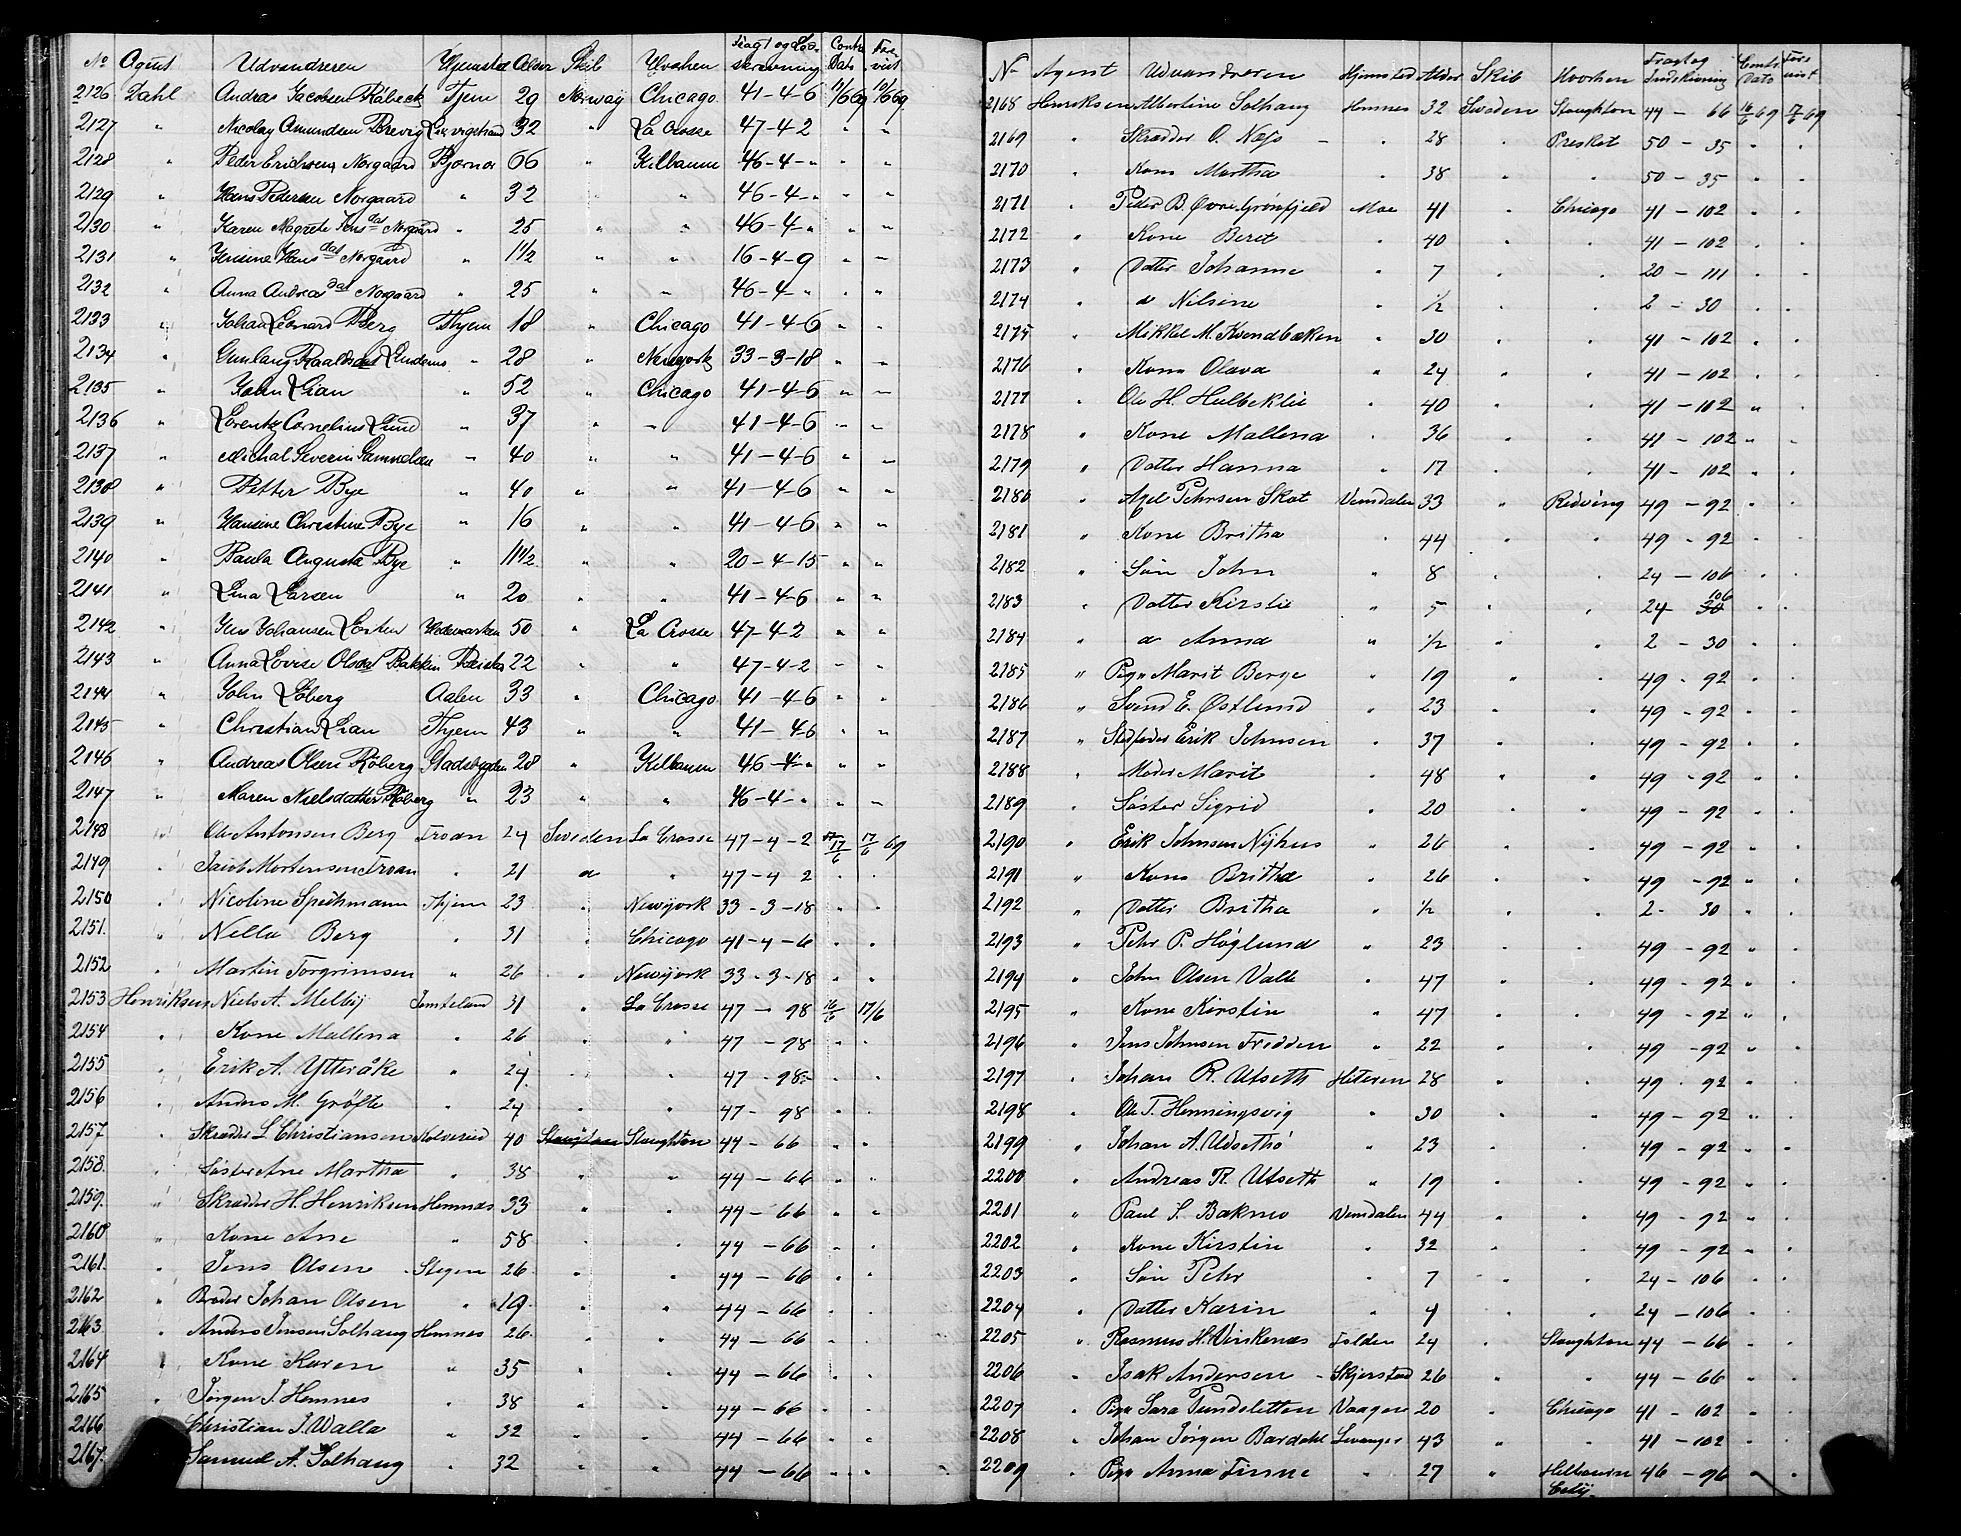 No Agent Udvandreren Hjemsted Alder Skib Hvorhen Fragt og Lodskrivning Contr. Dato Forevist
2126 Dahl Andras Jacobsen Råbeck Tjem 29 Norway Chicago 41-4-6 11/6 69 12/6 69
2127 " Nicolay Amundsen Brevig 32 " La Crosse 47-4-2 " "
2128 " Peder Erichsen Norgaard Bjørnor 66 " Kilbaune 46-4-" " "
2129 " Hans Pedersen Norgaard " 32 " 46-4-" " "
2130 " Karen Magrete Jens dat Norgaard " 25 " " 46-4-" " "
2131 " Jensine Hans dat Norgaard " 1 1/2 " " 16-4-9 " "
2132 " Anna Andreas dat Norgaard " 25 " " 46-4-" " "
2133 " Johan Leonard Berg Thjem 18 " Chicago 41-4-6 " "
2134 " Gunlaug Lindems " 28 " Newyork 33-3-18 " "
2135 " John Lian " 52 " Chicago 41-4-6 " "
2136 " Lorentz Cornelius Lund " 37 " " 41-4-6 " "
2137 " Michal Severin " 40 " " 41-4-6 " "
2138 " Petter Bye " 40 " " 41-4-6 " "
2139 " Hansine Christine Bye " 16 " " 41-4-6 " "
2140 " Paula Augusta Bye " 11 1/2 " " 20-4-15 " "
2141 " Lina Larsen " 20 " " 41-4-6 " "
2142 " Jens Johansen Hedemarken 50 " La Crosse 47-4-2 " "
2143 " Anna Lovise Olsdat Bakken 22 " " 47-4-2 " "
2144 " John Løberg Aalen 33 " Chicago 41-4-6 " "
2145 " Christian Lian Thjem 43 " " 41-4-6 " "
2146 " Andreas Olsen Råberg Stadsbygden 28 " Kilbaunn 46-4-" " "
2147 " Maren Nielsdatter Råberg " 23 " " 46-4-" " "
2148 " Ole Antonsen Berg Ørsan 24 Sweden La Crosse 47-4-2 17/6 17/6 69
2149 " Jacob Mortensen " 21 do " 47-4 2 " "
2150 " Nicoline Speihmann Thjem 23 " Newyork 33-3-18 " "
2151. " Nella Berg " 31 " Chicago 41-4-6 " "
2152 " Martin Torgrimsen " 26 " Newyork 33-3-18 " "
2153 Henriksen Niels A. Melbÿ Jemteland 31 " La Crosse 47 - 98 16/6 17/6
2154 " Kone Mallena " 26 " 47 - 98 " "
2155 " Erik A. Ytteråke " 24 " " 47 - 98 " "
2156 " Anders M. Grøfte " 24 " " 47 - 98 " "
2157 " Skræder L Christiansen Kolvereid 40 Stoughton Stoughton 44 - 66 " "
2158. " Søster Ane Martha " 38 " " 44 - 66 " "
2159. " Skræder H. Henriksen Hemnæs 33 " " 44 - 66 " "
2160 " Kone Ane " 58 " " 44 - 66 " "
2161. " Jens Olsen Stegen 26 " " 44 - 66 " "
2162 " Broder Johan Olsen " 19 " " 44 - 66 " "
2163 " Anders Jensen Solhaug Hemnes 26 " " 44 - 66 " "
2164 " Kone Karen " 35 " " 44 - 66 " "
2165 Jørgen J. Hemnes " 38 " " 44 - 66 " "
2166 Christian J. Walla " 32 " " 44 - 66 " "
2167. Samuel A. Solhaug " 32 " " 44 - 66 " "
No Agent Udvandreren Hjemsted Alder Skib Hvorhen Fragt og Indskrivning Contr Dato Forevist
2168 Henriksen Albertine Solhaug Hemnes 32 Sweden Stoughton 44 - 66 16/6 69 17/6 69
2169 " Skrædder O. Næss " 28 " Preskot 50 - 35 " "
2170 " Kone Martha " 38 " " 50 - 35 " "
2171 " Peder B. Øvre Grønfjeld Moe 41 " Chicago 41 - 102 " "
2172 " Kone Beret " 40 " " 41 - 102 " "
2173 " Datter Johanne " 7 " " 20 - 111 " "
2174 " do Nilsine " 1/2 " " 2 - 30 " "
2175 " Mikkel M. Kvendbækken " 30 " " 41 - 102 " "
2176 " Kone Olava " 24 " " 41 - 102 " "
2177 " Ole H. Hulbeklie " 40 " " 41 - 102 " "
2178 " Kone Mallena " 36 " " 41 - 102 " "
2179 " Datter Hanna " 17 " " 41 - 102 " "
2180 " Axel Pehrsen Skot Vemdalen 33 " Redwing 49 - 92 " "
2181 " Kone Britha " 44 " " 49 - 92 " "
2182 " Søn John " 8 " " 24 - 106 " "
2183 " Datter Kirstie " 5 " " 24 - 30 106 " "
2184 " do Anna " 1/2 " " 2 - 30 " "
2185 " Pige Marit Berge " 19 " " 49 - 92 " "
2186 " Svend E. Østlund " 23 " " 49 - 92 " "
2187 " Stedfader Erik Johnsen " 37 " " 49 - 92 " "
2188 " Moder Marit " 48 " " 49 - 92 " "
2189 " Søster Sigrid " 20 " " 49 - 92 " "
2190 " Erik Johnsen Nÿhus " 26 " " 49 - 92 " "
2191 " Kone Britha " 26 " " 49 - 92 " "
2192 " Datter Britha " 1/2 " " 2 - 30 " "
2193 " Pehr P. Høglund " 23 " " 49 - 92 " "
2194 " John Olsen Valle " 47 " " 49 - 92 " "
2195 " Kone Kirstin " 47 " " 49 - 92 " "
2196 " Jens Johnsen Fredden " 22 " " 49 - 92 " "
2197 " Johan R. Utseth Hiteren 28 " " 49 - 92 " "
2198 " Ole T. Henningsvig " 30 " " 49 - 92 " "
2199 " Johan A. " 23 " " 49 - 92 " "
2200 " Andreas R. Utseth " 19 " " 49 - 92 " "
2201 " Paul S. Vemdalen 44 " " 49 - 92 " "
2202 " Kone Kirstin " 32 " " 49 - 92 " "
2203 " Søn Pehr " 7 " " 24 - 106 " "
2204 " Datter Karin " 4 " " 24 - 106 " "
2205 " Rasmus H. Virkenæs Folden 24 " Stoughton 44 - 66 " "
2206 " Isak Andersen Skjerstad 26 " " 44 - 66 " "
2207 " Pige Sara Vaagen 20 " Chicago 41 - 102 " "
2208 " Johan Jørgen Bardahl Levanger 43 " " 41 - 102 " "
2209 " Pige Anna Finne " 27 " Helbourn 46 - 96 " "
Citÿ.